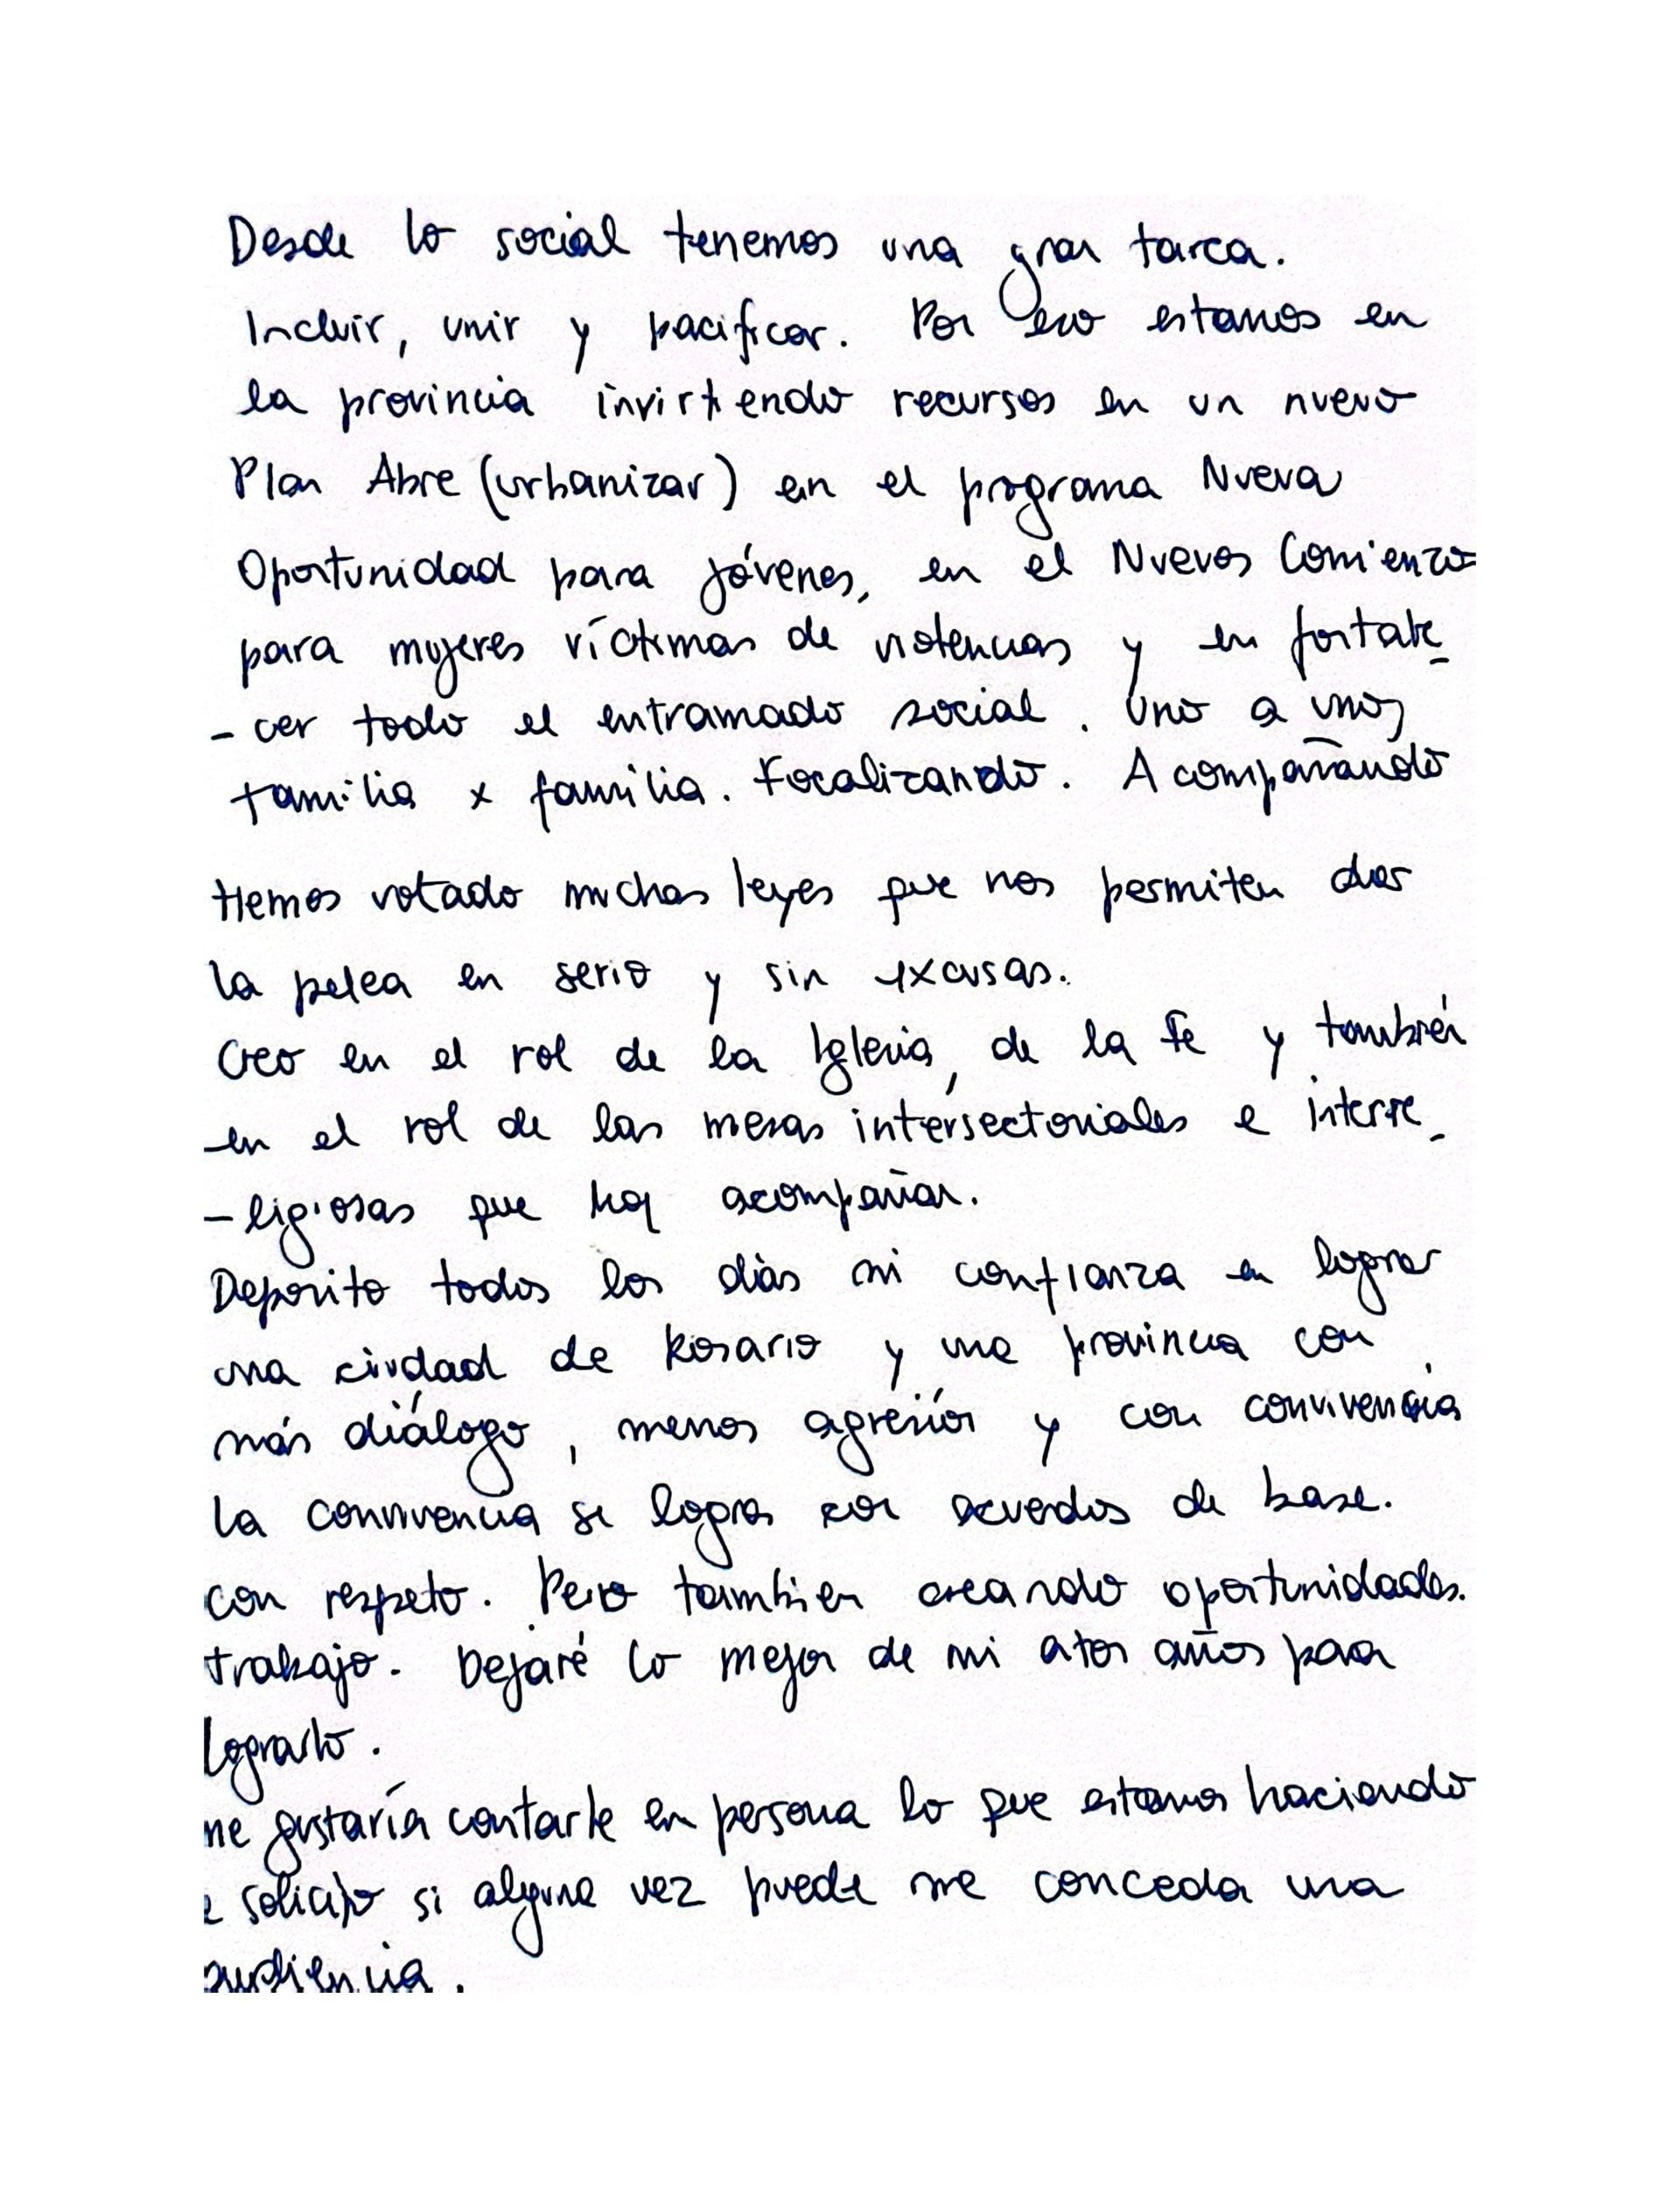 Desde lo social tenemos una gran tarea.
Incluir, unir y pacificar. Por eso estamos en
la provincia invirtiendo recursos en un nuevo
Plan Abre (urbanizar) en el programa Nueva
Oportunidad para jóvenes, en el Nuevos Comienzo
para mujeres víctimas de violencias y en fortale_
- cer todo el entramado social. Uno a uno,
familia x familia. Focalizando. Acompañando
Hemos votado muchas leyes que nos permiten dar
la pelea en serio y sin excusas.
Creo en el rol de la Iglesia, de la Fe y también
en el rol de las mesas intersectoriales e interre_
- ligiosas que hay acompañar.
Deposito todos los días mi confianza en lograr
una ciudad de Rosario y una provincia con
más diálogo, menos agresión y con convivencia
la convivencia se logra con acuerdos de base.
con respeto. Pero tambien creando oportunidades.
trabajo. Dejaré lo mejor de mi estos años para
lograrlo.
me gustaría contarle en persona lo que estamos haciendo
e solicito si alguna vez puede me conceda una
audiencia.